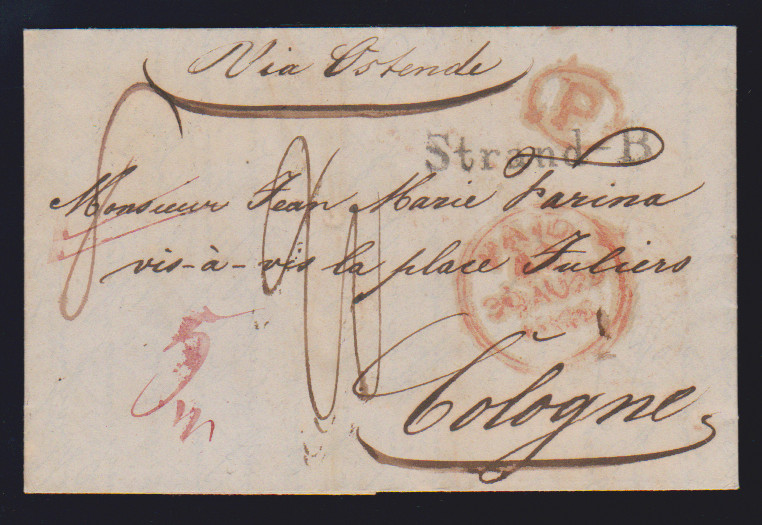 Via Ostende
P
Strand-B
Monsieur Jean Marie Farina
vis-à-vis la place Juliers
PAID
30 AU
5
Cologne